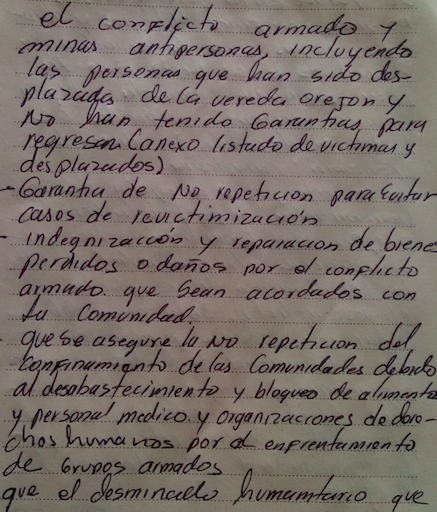 el conflicto armado y
minas antipersonas, incluyendo
las personas que han sido des-
plazadas de la vereda orejon y
No han tenido Garantias para
regresar (anexo listado de victimas y
desplazados)
- Garantia de No repeticion para Evitar
casos de revictimización
- indegnizacción y reparacion de bienes
perdidos o daños por el conflicto
armado que sean acordados con
la Comunidad.
que se asegure la No repeticion del
Confinamiento de las Comunidades debido
al desabastecimiento y bloqueo de alimento
y personal medico y organizaciones de dere-
chos humanos por el enfrentamiento
de Grupos armados
que el desminado humanitario que